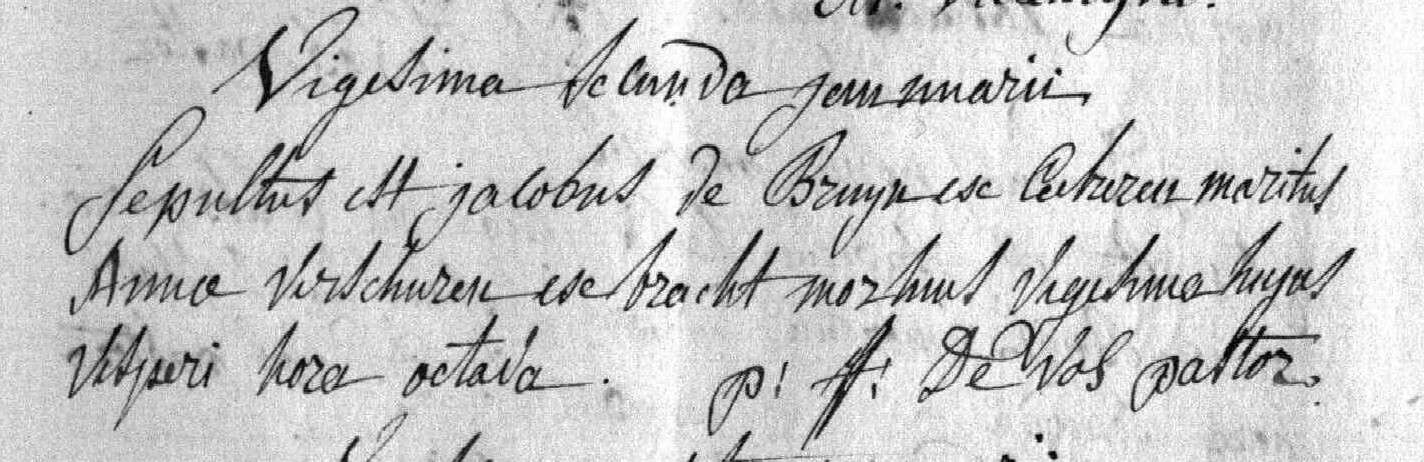 Vigesima secunda januarii
Sepultus est jacobus de Bruyn ex maritus
Annæ Verschuren ex bracht mortuus vigesima hujus
Vesperi hora octava. p: De Vos pastor.